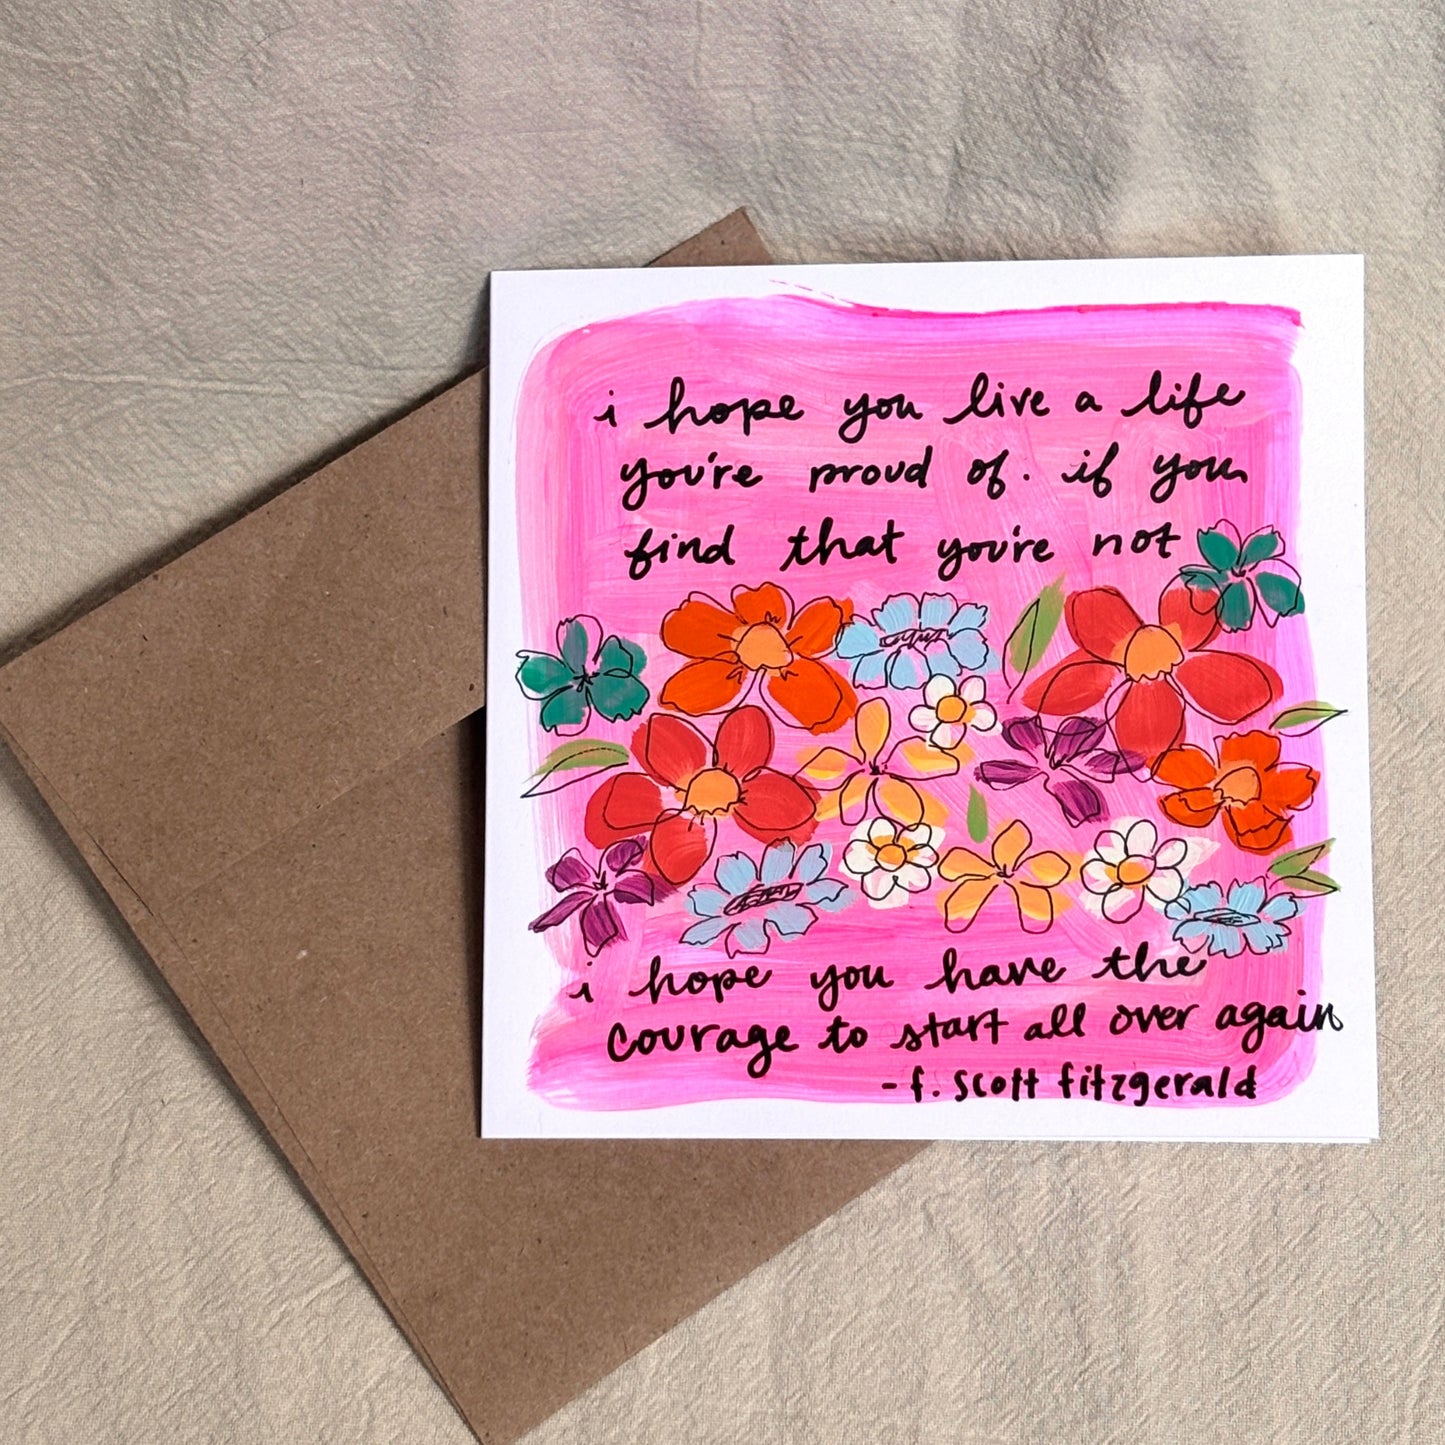 i hope you live a life
you're proud of. if you
find that you're not
i hope you have the
courage to start all over again
- f. scott fitzgerald